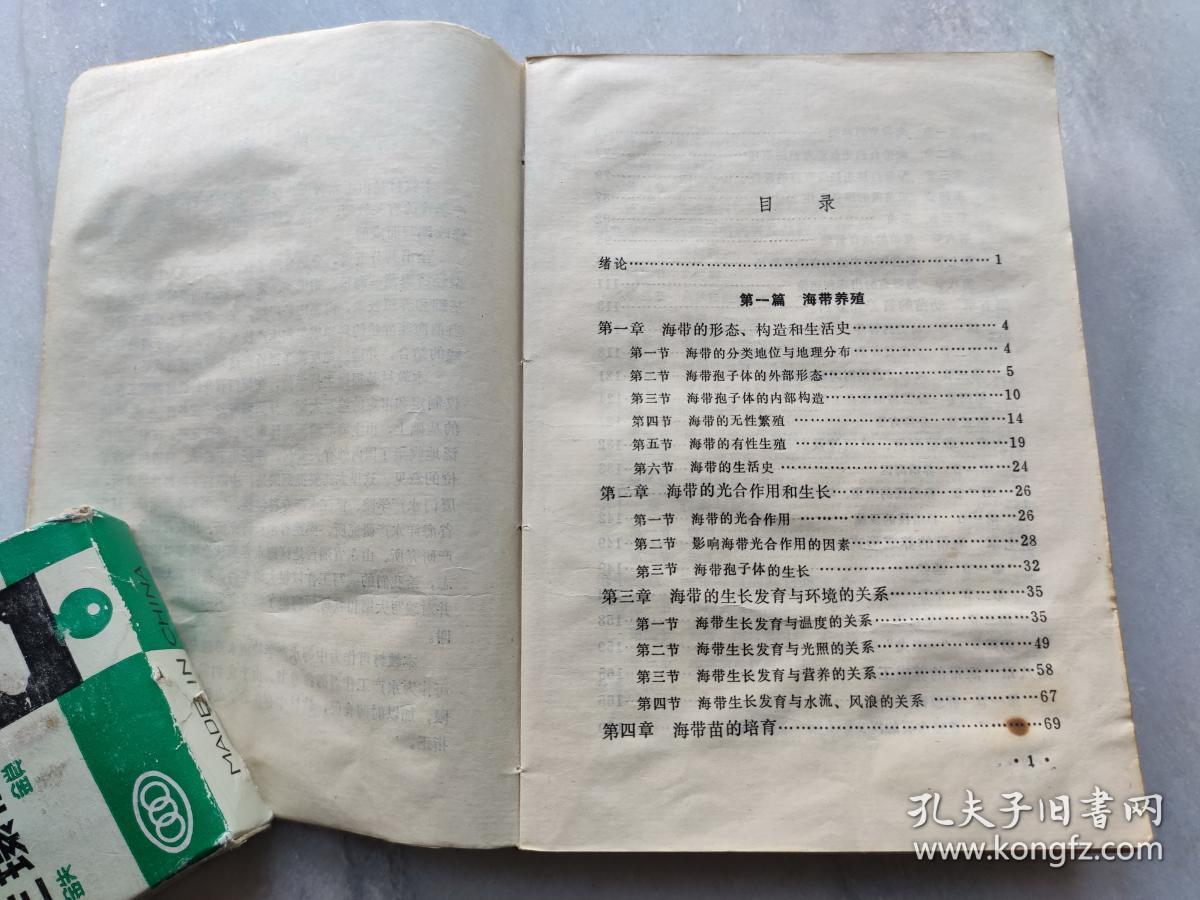 目 录
绪论………………………………………………………… 1
第一篇 海带养殖
第一章 海带的形态、构造和生活史……………………… 4
第一节 海带的分类地位与地理分布……………………… 4
第二节 海带孢子体的外部形态…………………………… 5
第三节 海带孢子体的内部构造…………………………10
第四节 海带的无性繁殖…………………………………14
第五节 海带的有性生殖…………………………………19
第六节 海带的生活史……………………………………24
第二章 海带的光合作用和生长…………………………26
第一节 海带的光合作用…………………………………26
第二节 影响海带光合作用的因素………………………28
第三节 海带孢子体的生长………………………………32
第三章 海带的生长发育与环境的关系…………………35
第一节 海带生长发育与温度的关系……………………35
第二节 海带生长发育与光照的关系……………………49
第三节 海带生长发育与营养的关系……………………58
第四节 海带生长发育与水流、风浪的关系……………67
第四章 海带苗的培育……………………………………69
· 1 ·
MADE IN CHINA
孔夫子旧书网
www.kongfz.com